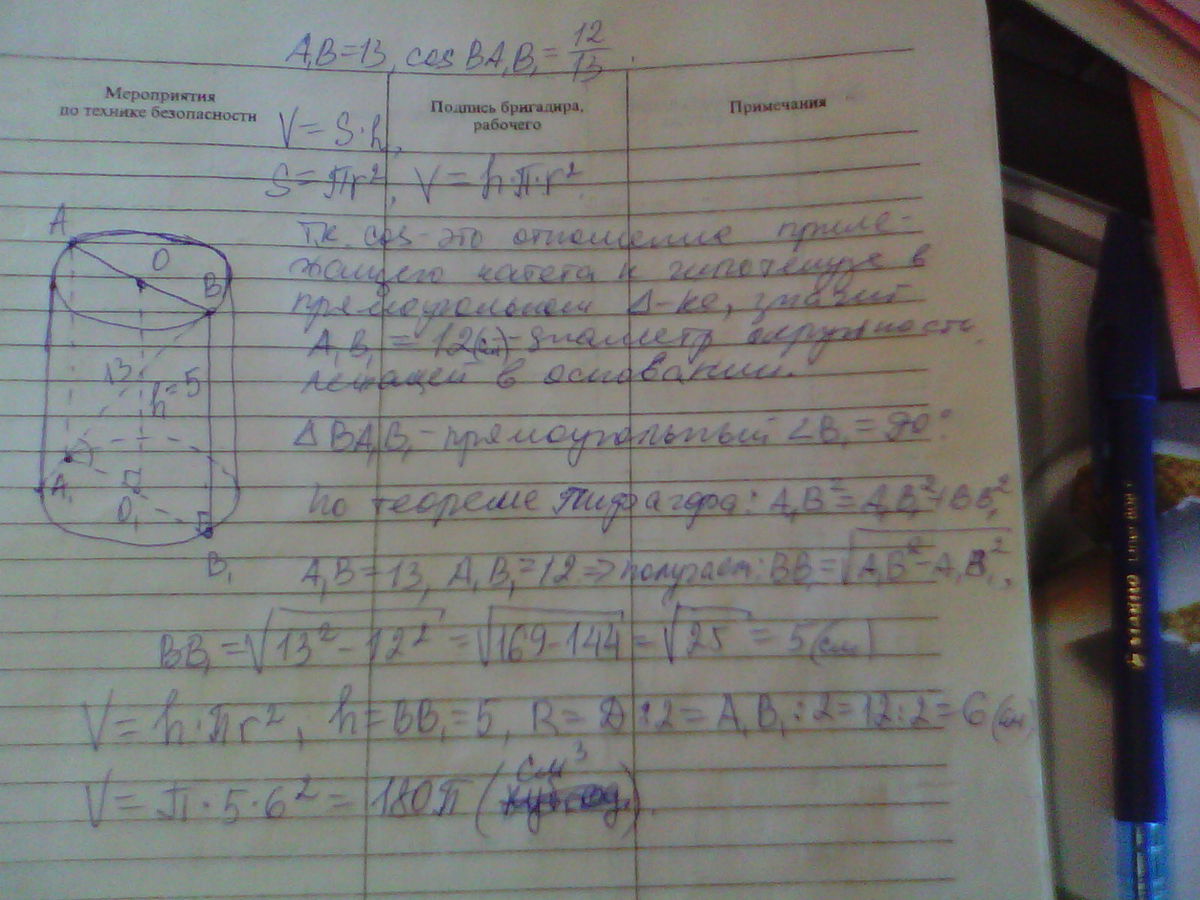 A₁B=13, cos BA₁B₁ = 12/13.
Мероприятия
по технике безопасности
Подпись бригадира,
рабочего
Примечания
V = S·h,
S = πr², V = h·π·r²
A
O
B
13
h=5
A₁
O₁
B₁
Т.к. cos - это отношение приле-
жащего катета к гипотенузе в
прямоугольном Δ-ке, значит
A₁B₁ = 12(см)-диаметр окружности
лежащей в основании.
Δ BA₁B₁ - прямоугольный ∠B₁ = 90°.
по теореме Пифагора: A₁B² = A₁B₁² + BB₁²
A₁B = 13, A₁B₁ = 12 => получаем: BB₁ = √A₁B² - A₁B₁²,
BB₁ = √13² - 12² = √169-144 = √25 = 5 (см)
V = h·πr², h = BB₁ = 5, R = D:2 = A₁B₁:2 = 12:2 = 6 (см)
V = π·5·6² = 180π (см³).
MARIO